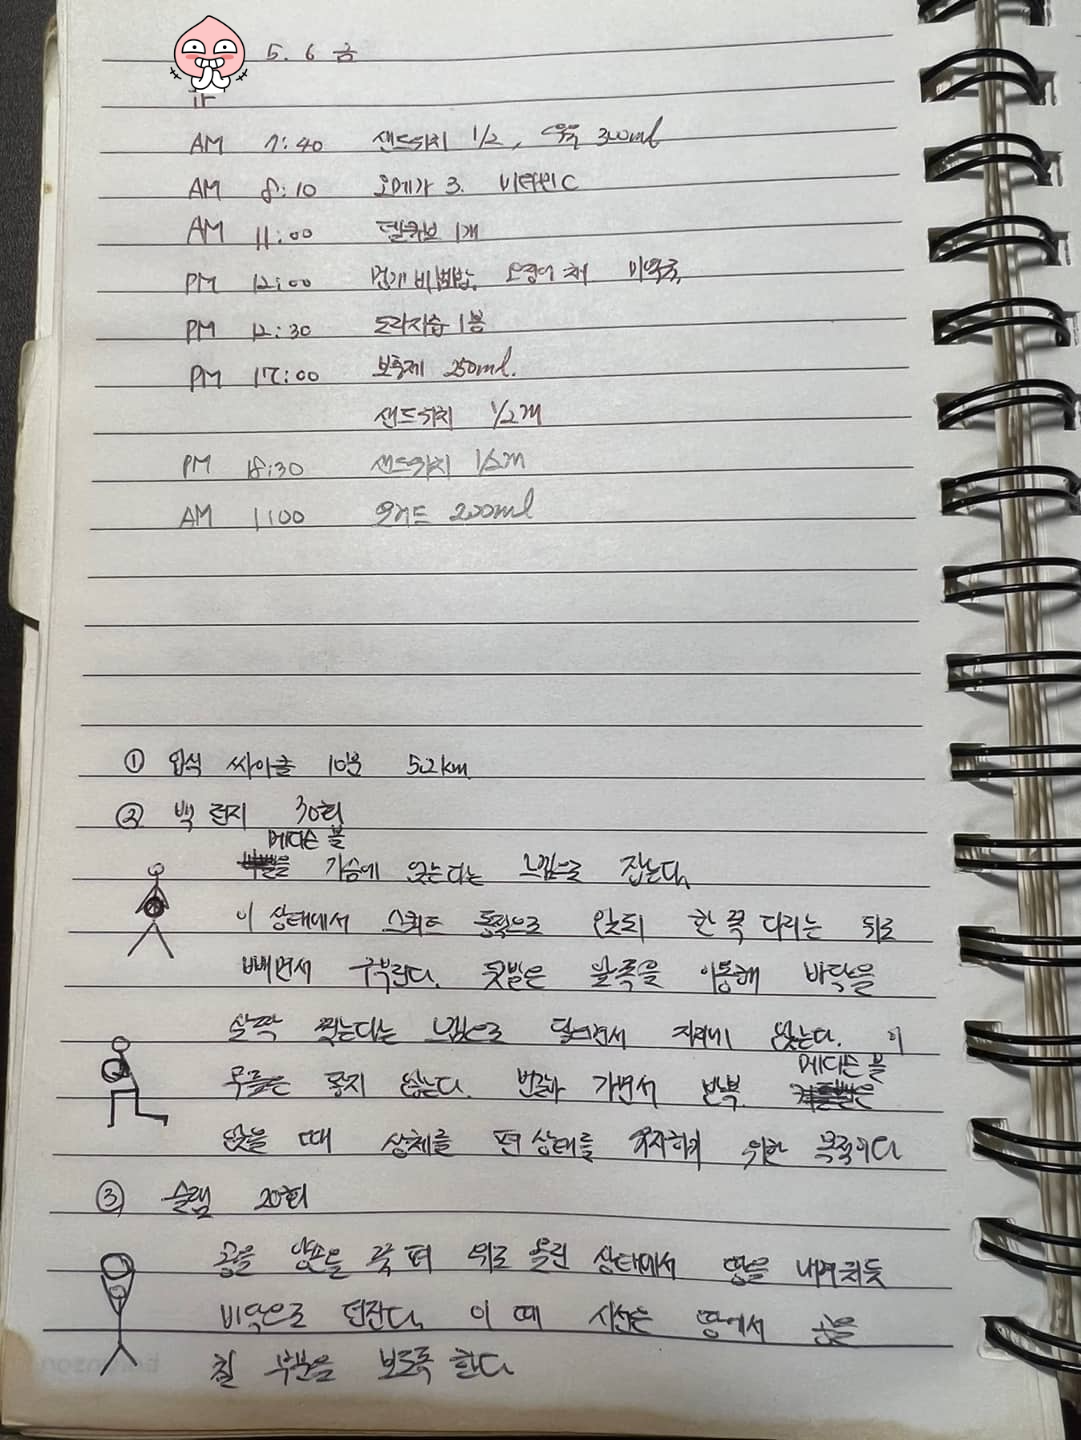 5. 6 금
AM 7:40 샌드위치 1/2, 우유 300ml
AM 8:10 오메가 3. 비타민C
AM 11:00 델큐브 1개
PM 12:00 멍게 비빔밥, 오징어채 미역국
PM 12:30 도라지즙 1봉
PM 17:00 보충제 250ml.
샌드위치 1/2개
PM 18:30 샌드위치 1/2개
AM 1:00 200ml
① 입식 싸이클 10분 5.2km
② 백 런지 30회
메디슨 볼
을 가슴에 얹는다는 느낌으로 잡는다.
이 상태에서 스쿼트 동작으로 앉되 한 쪽 다리는 뒤로
빼면서 구부린다. 뒷발은 앞쪽을 이용해 바닥을
살짝 찍는다는 느낌으로 딛으면서 지지 않는다. 이
무릎은 좋지 않는다. 번갈아 가면서 반복.
메디슨 볼
은
앉을 때 상체를 편 상태를 유지하기 위한 목적이다
③ 슬램 20회
공을 양손을 쭉 펴 위로 올린 상태에서 땅을 내려치듯
바닥으로 던진다. 이 때 시선은 땅에서 공을
칠 부분을 보도록 한다